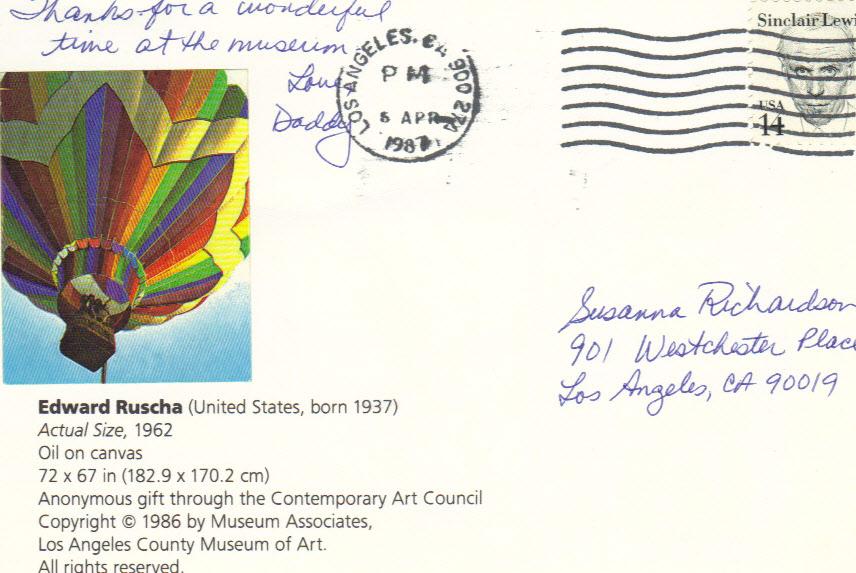 Thanks for a wonderful
time at the museum
Love
Daddy
LOS ANGELES. CA 900 274
PM
6 APR
1987
Sinclair Lewi
USA
14
Susanna Richardson
901 Westchester Place
Los Angeles, CA 90019
Edward Ruscha (United States, born 1937)
Actual Size, 1962
Oil on canvas
72 x 67 in (182.9 x 170.2 cm)
Anonymous gift through the Contemporary Art Council
Copyright © 1986 by Museum Associates,
Los Angeles County Museum of Art.
All rights reserved.